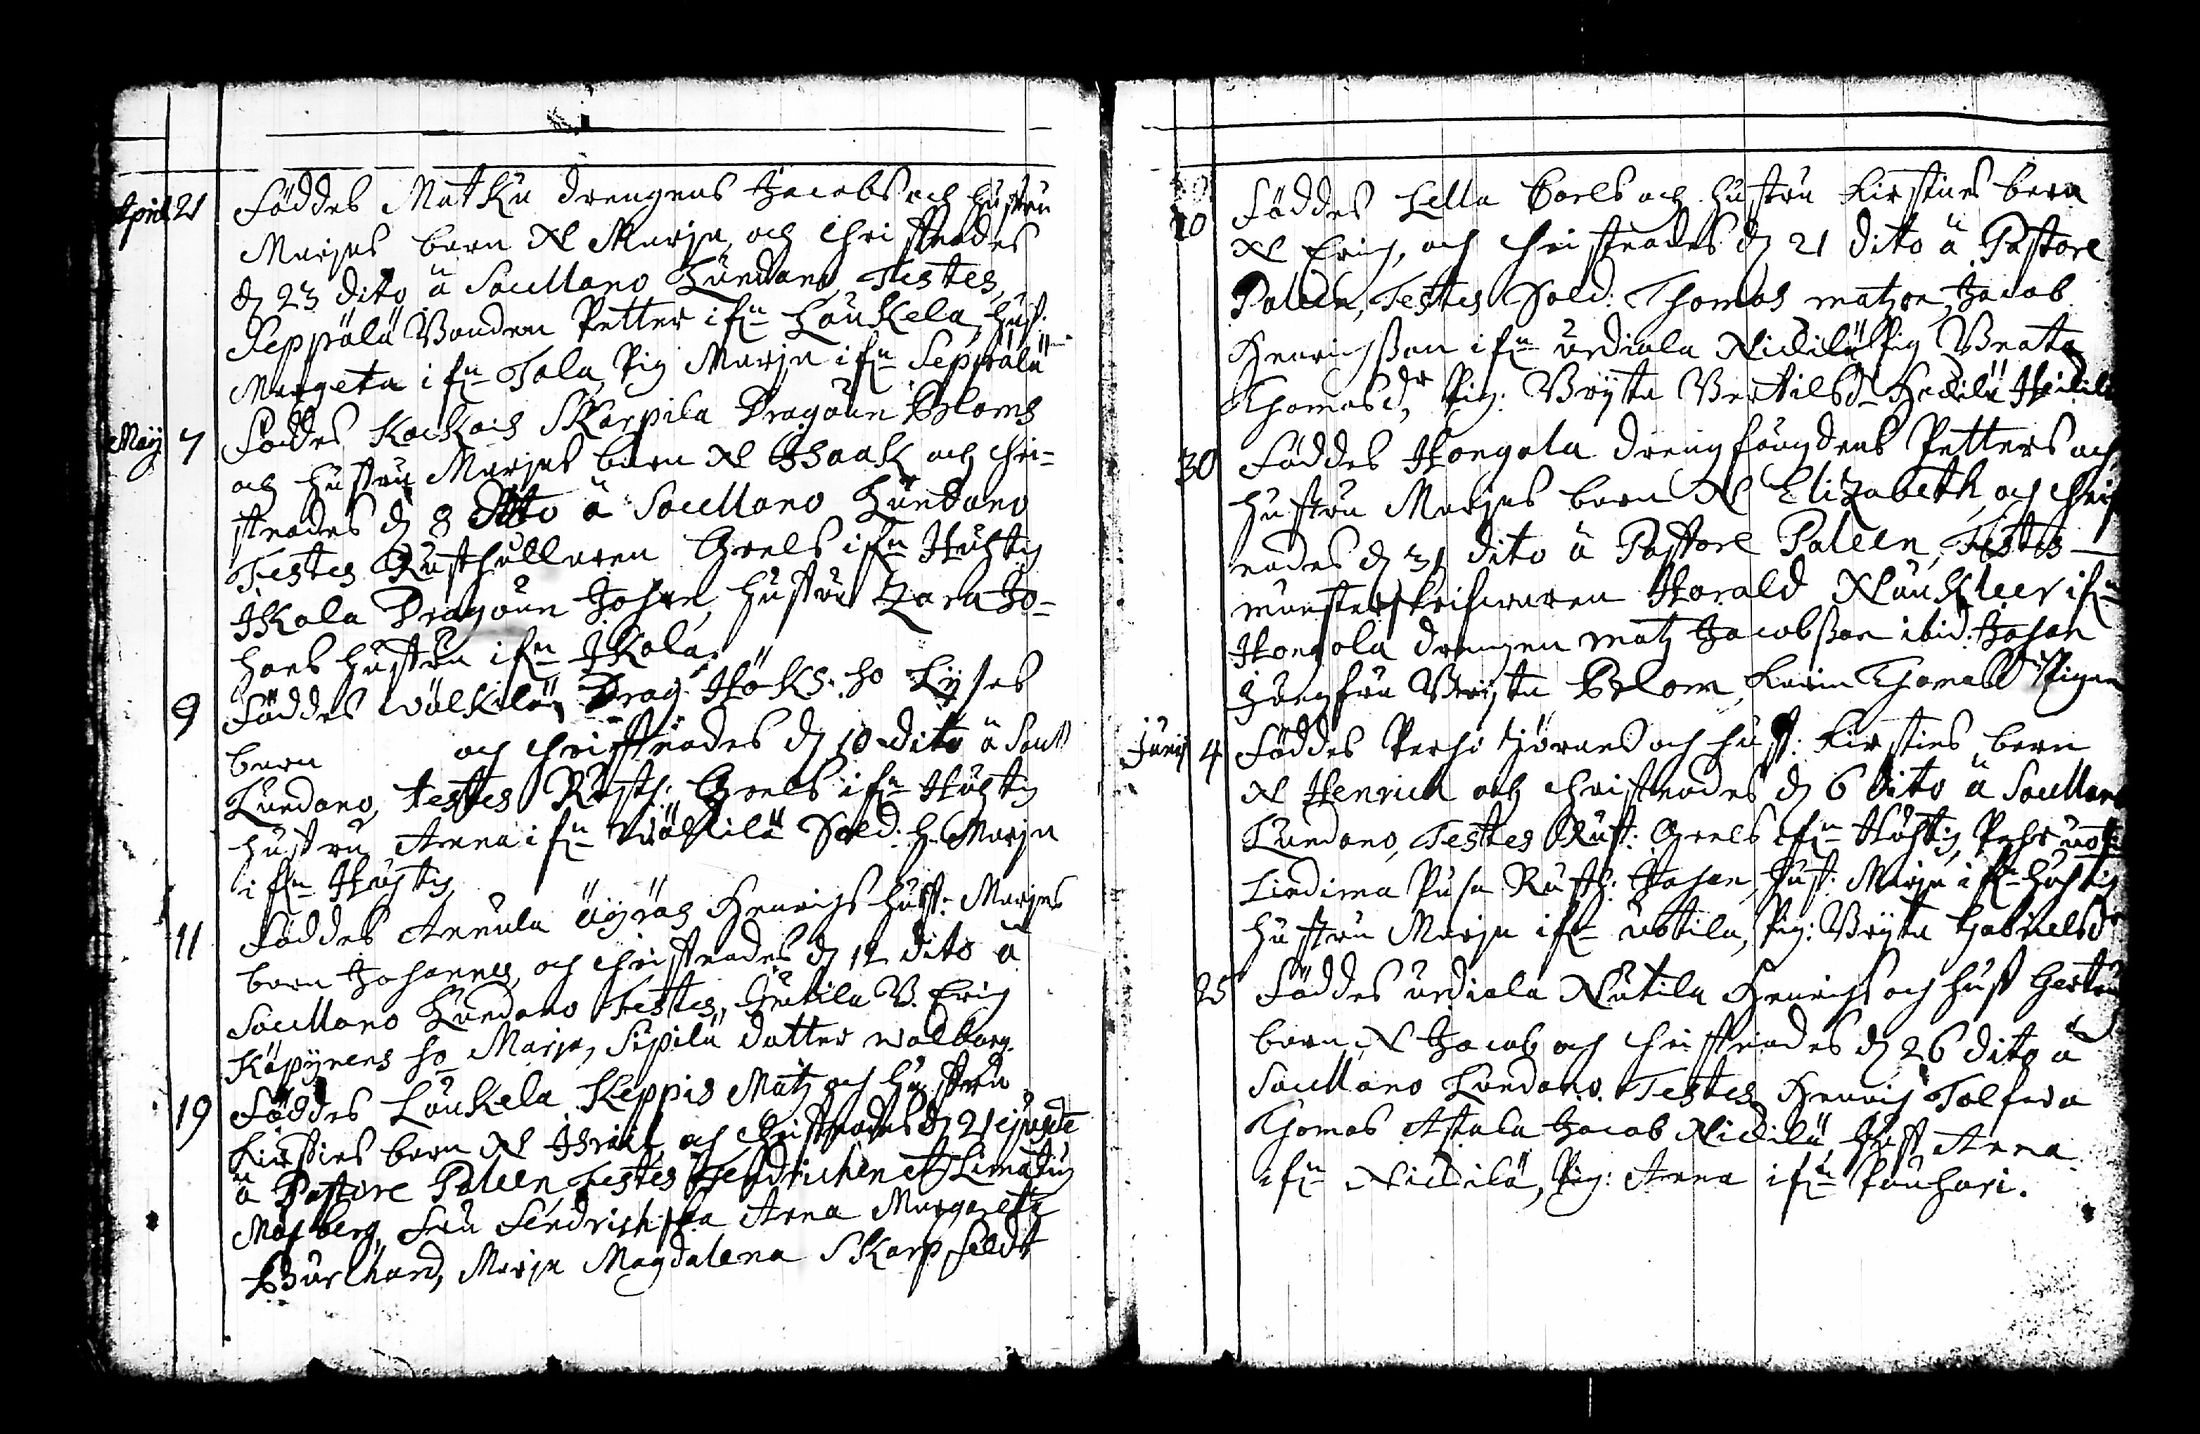 April 21 Föddes Matku drengens Jacobs och hustru
Marjas barn N Marja, och Christnades
d 23 dito a Sacellano Lundano, Testes,
Seppälä Bonden Petter ifn Loukela, hust:
Margeta ifn Tala, Pig Marja ifn Seppälä
Maij 7 Föddes Kockois Skarpila Dragoun Bloms
och hustru Marjas barn N Isaak och Chri=
stnades d 8 dito a Sacellano Lundano
Testes Rusthullaren Grels ifn Huhtis
Ikola Dragoun Johan, hustru Zara Jo=
hans hustru ifn Ikola.
9 Föddes Wälkilä Drag: Höks: ho Lijses
barn och Christnades d 10 dito a Sacell
Lundano, testes Rusth: Grels ifn Huhtis
hustru Anna ifn Wälkilä Sold: h. Marja
ifn Huhtis
11 Föddes Annula Äyräs Henrichs hust: Marjas
barn Johannes, och Christnades d 12 dito a
Sacellano Lundano Testes, Jutila B. Erich
Käpynens ho Marja, Sipilä dotter Walborg.
19 Föddes Loukela Keppis Matz och hustru
Kirsties barn N Israel, och Christnades d 21 ejusde
a Pastore Paleen, Testes Fendrichen
Mosberg, Fru Fendrichska Anna Margareta
Burchard, Marja Magdalena Skarpfeldt
20 Föddes Lella Boels och hustru Kirstines barn
N Erich, och Christnades d 21 dito a Pastore
Paleen, Testes Sold: Thomas Matzon, Jacob
Henrichsson ifn Urdiala Nickilä Pig Beata
Thomasdr, Pig: Brijta Bertilsd
30 Föddes Hongola drengfougdens Petters och
hustru Marjas barn N Elizabeth, och Christ
nades d 31 dito a Pastore Paleen, Testes
munsterskrifwaren Harald Nauckleer ifn
Hongola drengen Matz Jacobsson ibid: Johan
Jungfru Brijta Blom, Karin Thomasd Pigan
Junij 4 Föddes Perho Jörans och hust: Kirsties barn
N Henrich och Christnades d 6 dito a Sacellano
Lundano, Testes Rust: Grels ifn Huhtis, Pehr
Liedima Pusa Rusth: Johan, hust: Marja ifn Huhtis
hustru Marja ifn Uotila, Pig: Brijta Gabrielsdr
25 Föddes Urdiala Nutila Henrichs och hust Gertruds
barn N Jacob och Christnades d 26 dito a
Sacellano Lundano. Testes Henrich Tolfwa
Thomas Astala Jacob Nickilä Hust Anna
ifn Nickilä, Pig: Anna ifn Pouhari.